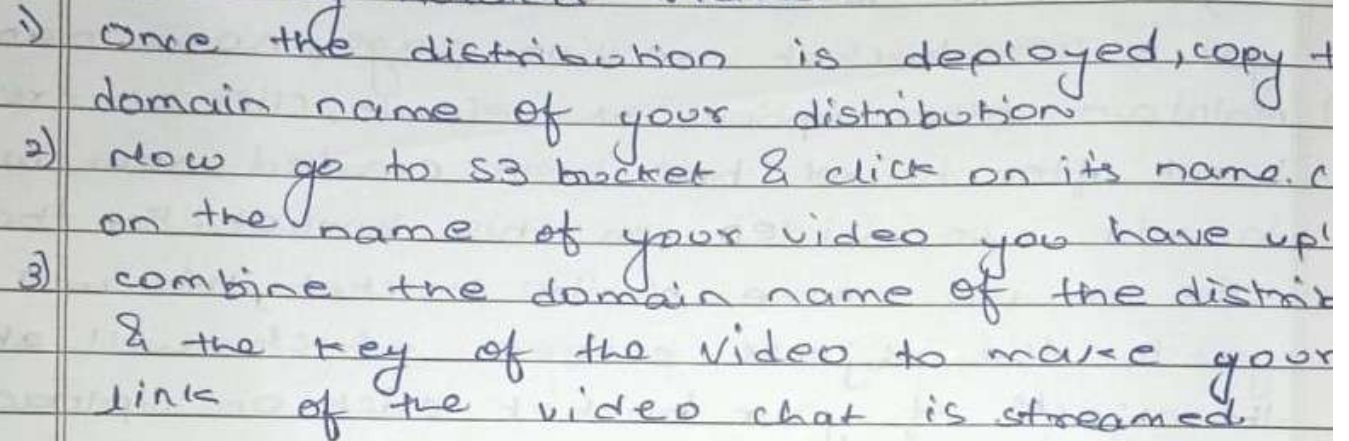 1) Once the distribution is deployed, copy t
domain name of your distribution
2) Now go to S3 bucket & click on its name. c
on the name of your video you have upl
3) combine the domain name of the distrib
& the key of the video to make your
link of the video chat is streamed.